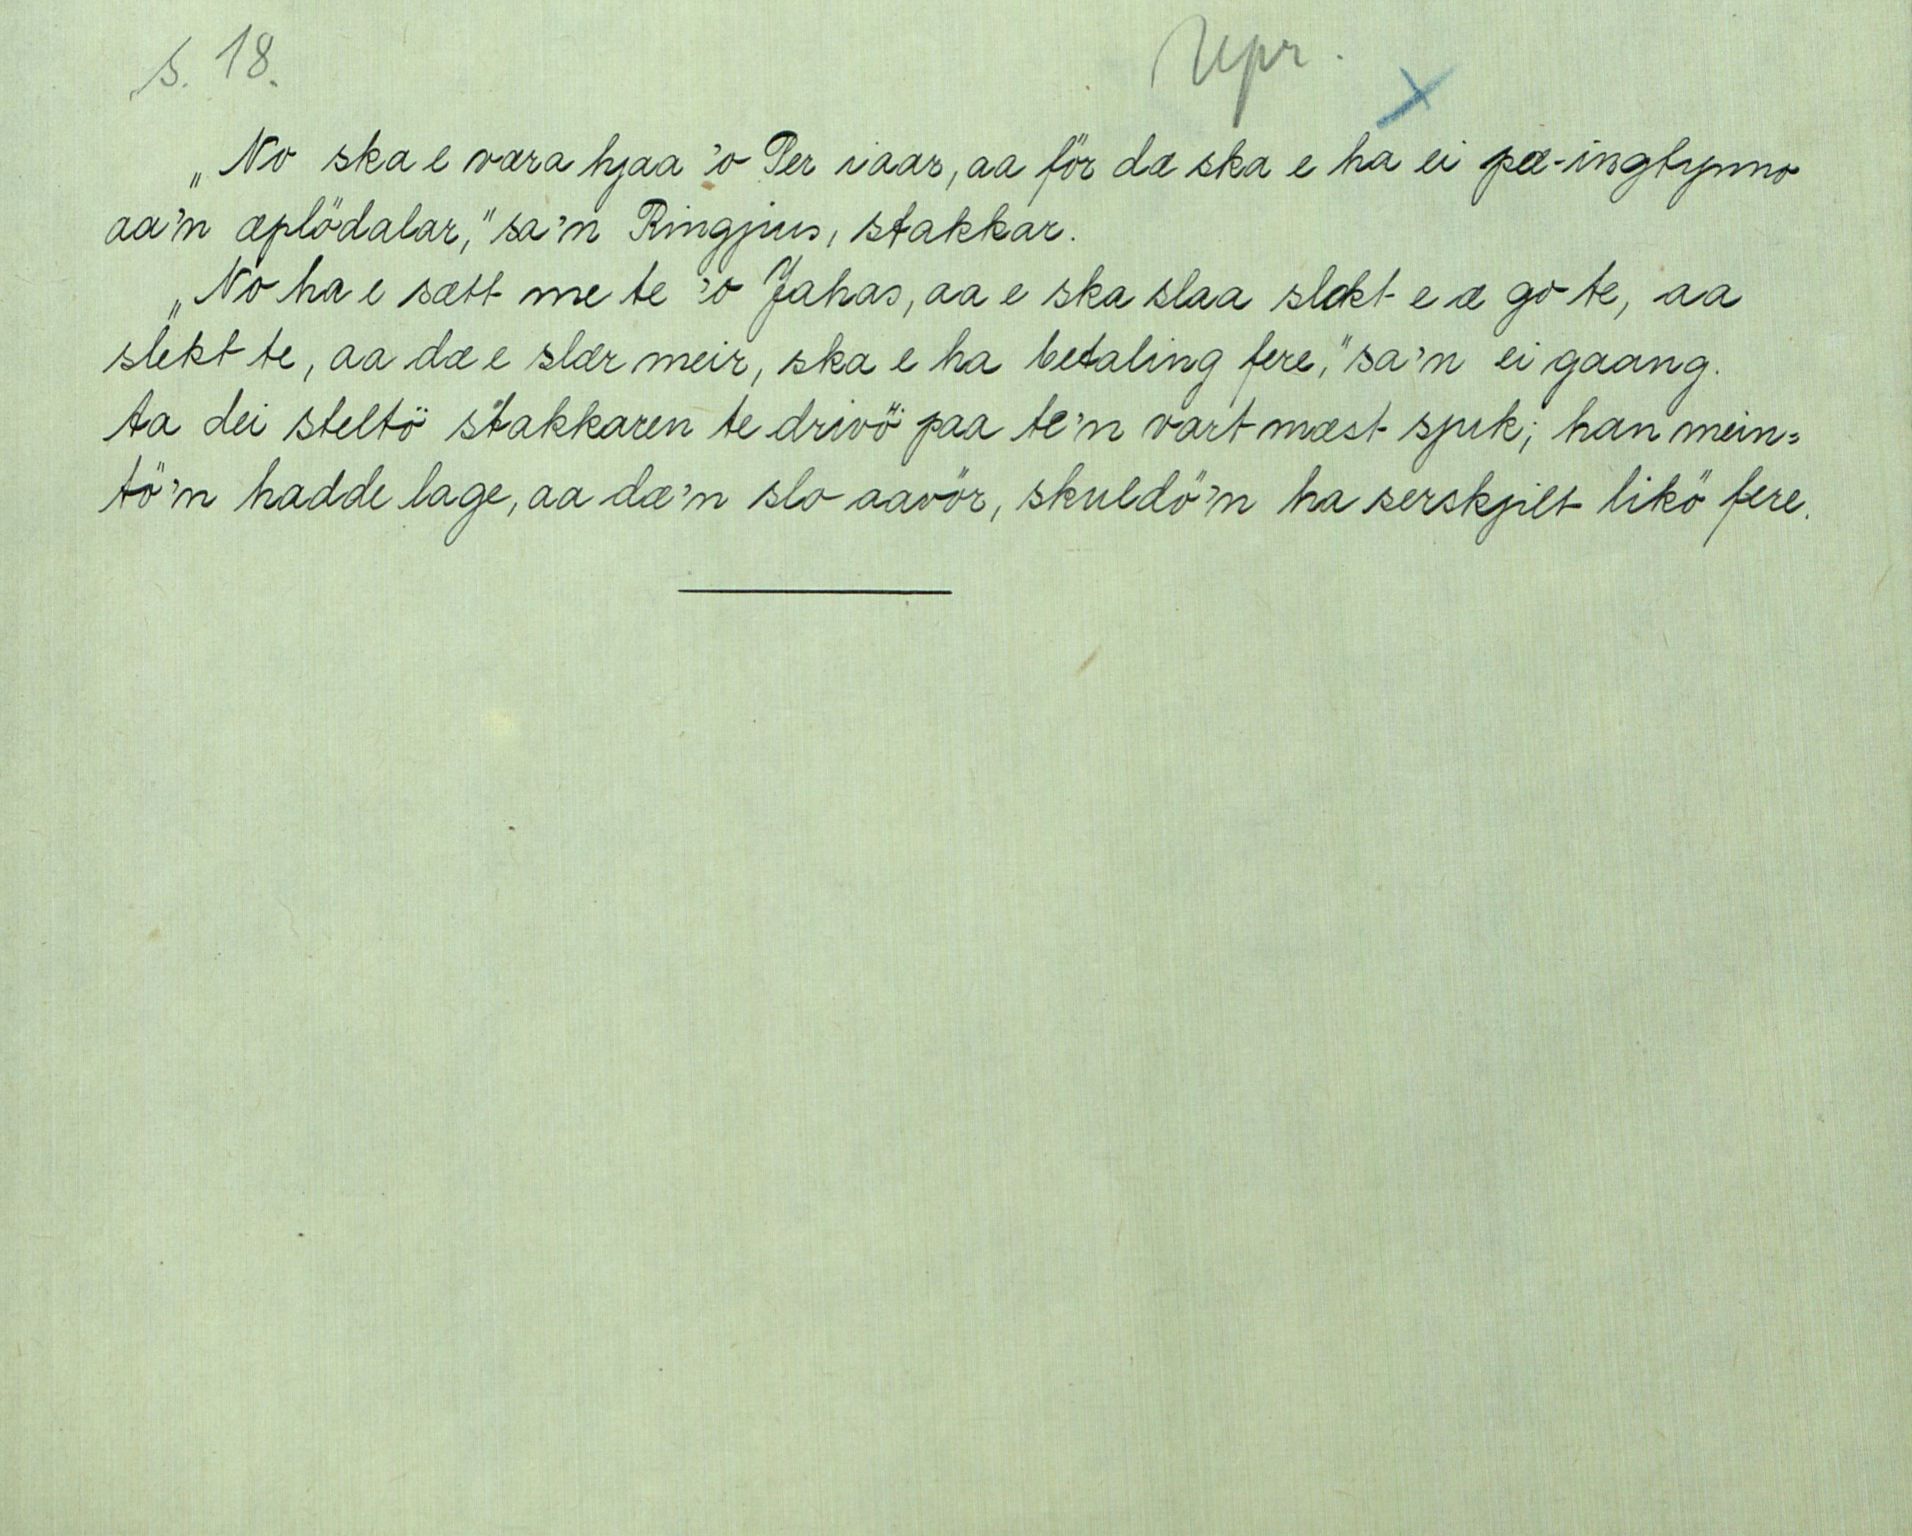 s. 18.
Upr.
„No ska e væra hjaa 'o Per iaar, aa för dæ ska e ha ei pæ-ingtynno
aa'n æplödalar," sa'n Ringjus, stakkar.
„No ha e sætt me te 'o Jahas, aa e ska slaa slekt e æ go te, aa
slekt te, aa dæ e slær meir, ska e ha betaling fere," sa'n ei gaang.
Aa dei steltö stakkaren te drivö paa te'n vart mæst sjuk; han mein=
tö'n hadde lage, aa dæ'n slo aavör, skuldö'n ha serskjilt likö fere.